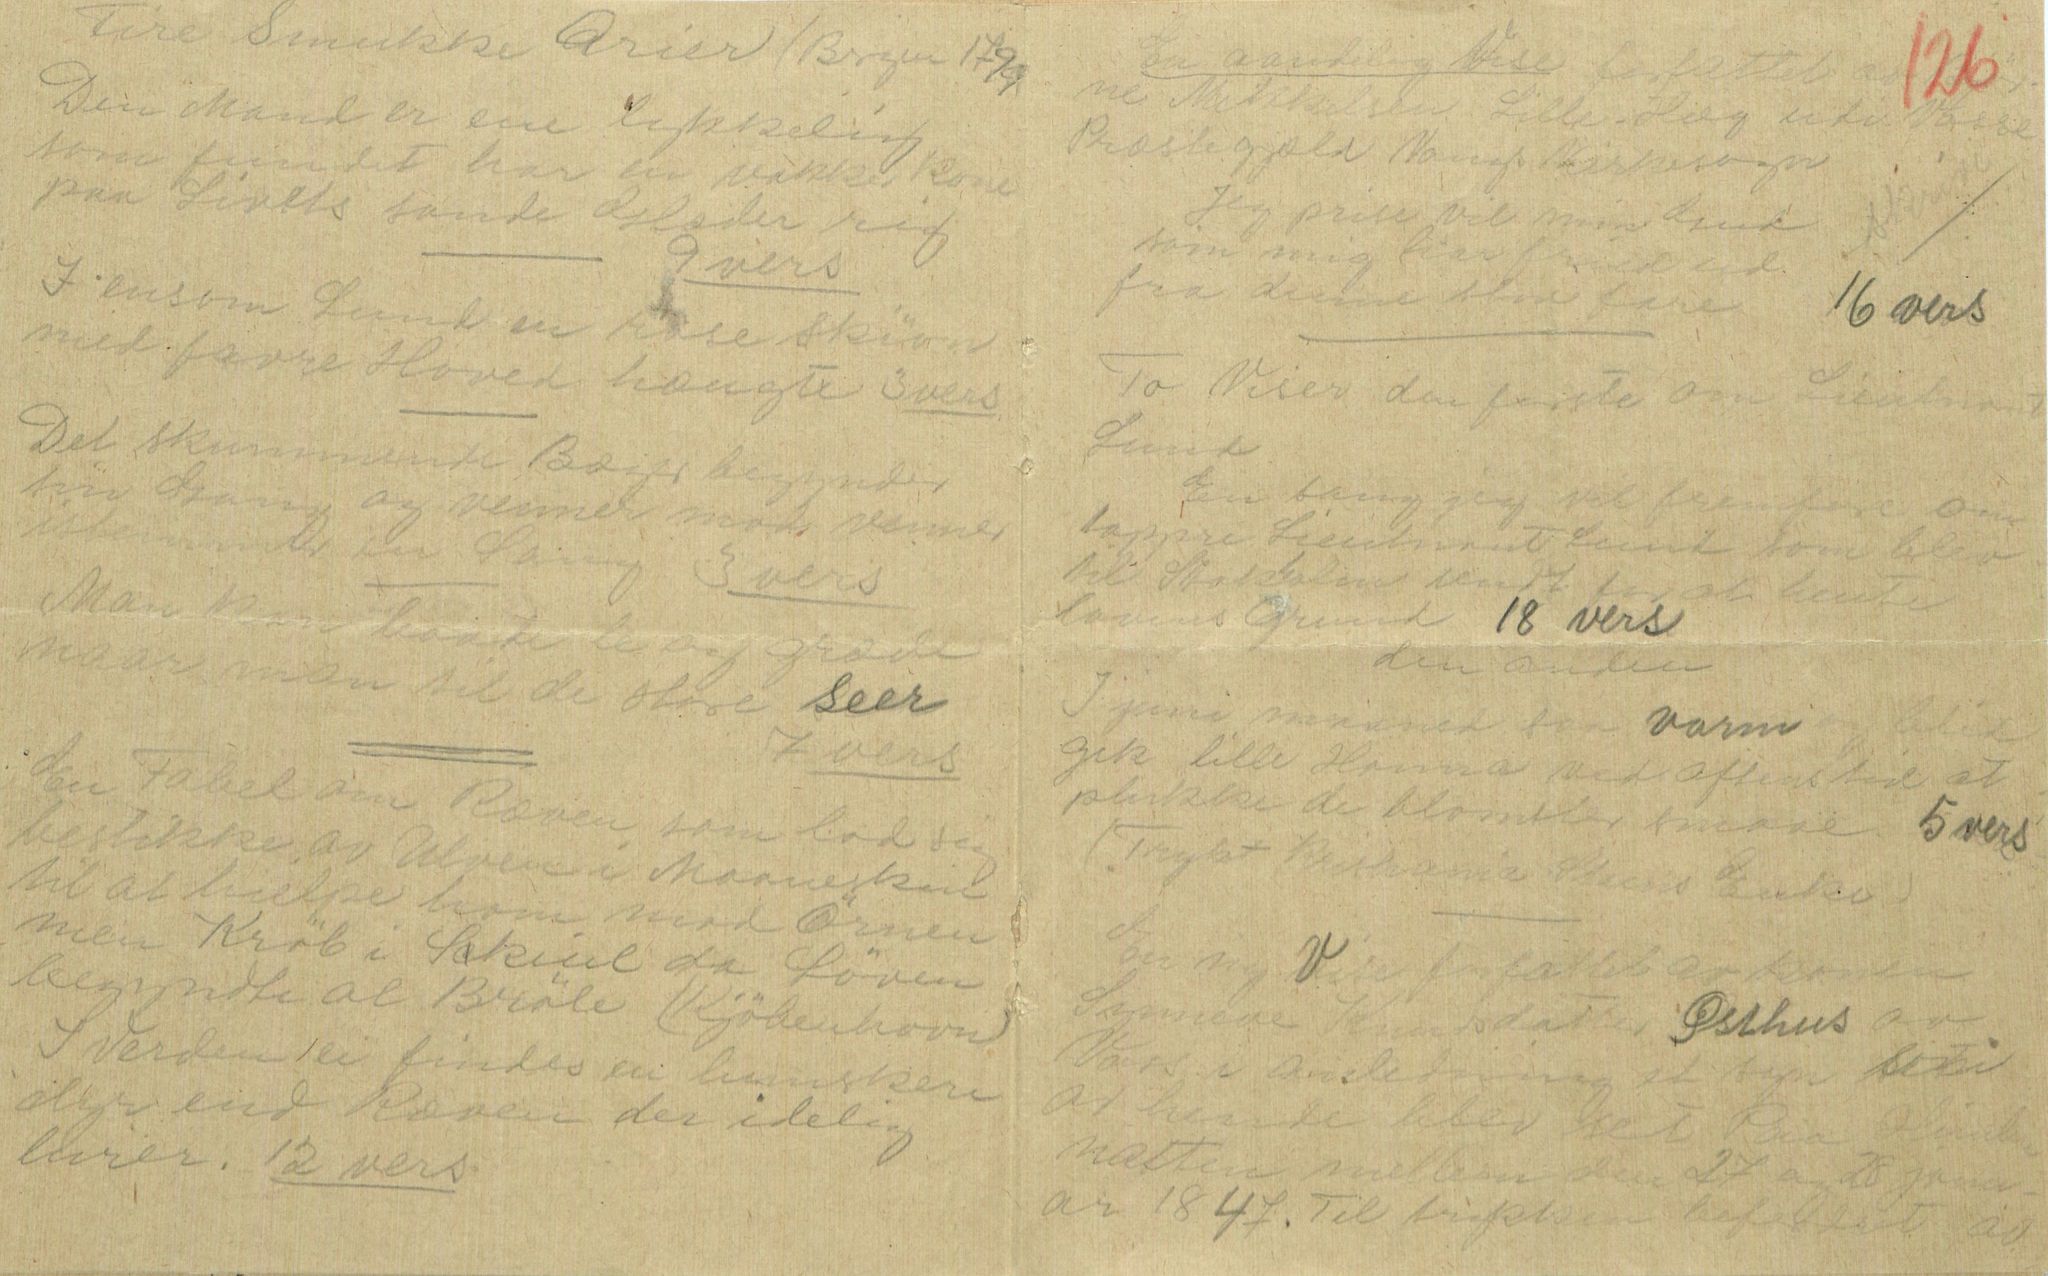 Fire Smukke Arier (Bergen 1799
Den Mand er ene lykkelig
som fundet har en vakker kone
paa Livets sande Glæder rig
9 vers
I ensom Lund en rose skiön
med favre Hoved hængte 3 vers
Det skummende Bæger begynder
sin Gang og venner mod venner
istemmer en Sang 3 vers
Man kan baade le og græde
naar man til de store seer
7 vers
En Fabel om Ræven som lod sig
bestikke av Ulven i Maaneskin
til at hielpe ham mod Örnen
men Kröb i Skiul da Löven
begyndte at Bröle (Kjöbenhavn)
I Verden ei findes en lumskere
dyr end Ræven der idelig
lurer. 12 vers
126
En aandelig Vise forfattet av
ne Mikkelsen Lille Hæg udi Vosse
Præstegjæld Vangs Kirkesogn
Jeg prise vil min Gud
som mig har friet ud
fra denne store fare 16 vers
To Viser den første om Lieutnant
Lund
En sang jeg vil fremføre om
tappre Lieutnant Lund som blev
til Stokholm sendt for at hente
lovens Grund 18 vers
den anden
I juni maaned saa varm og blid
gik lille Hanna ved aftenstid at
plukke de blomster smaae. 5 vers
(Trykt Kristiania Enke)
En ny Vise forfattet av konen
Synneve Knudsdatter Østhus av
Vos i anledning et syn som
av hende blev seet Paa
natten mellem den 27 og 28 janu-
ar 1847. Til trykken befordret av